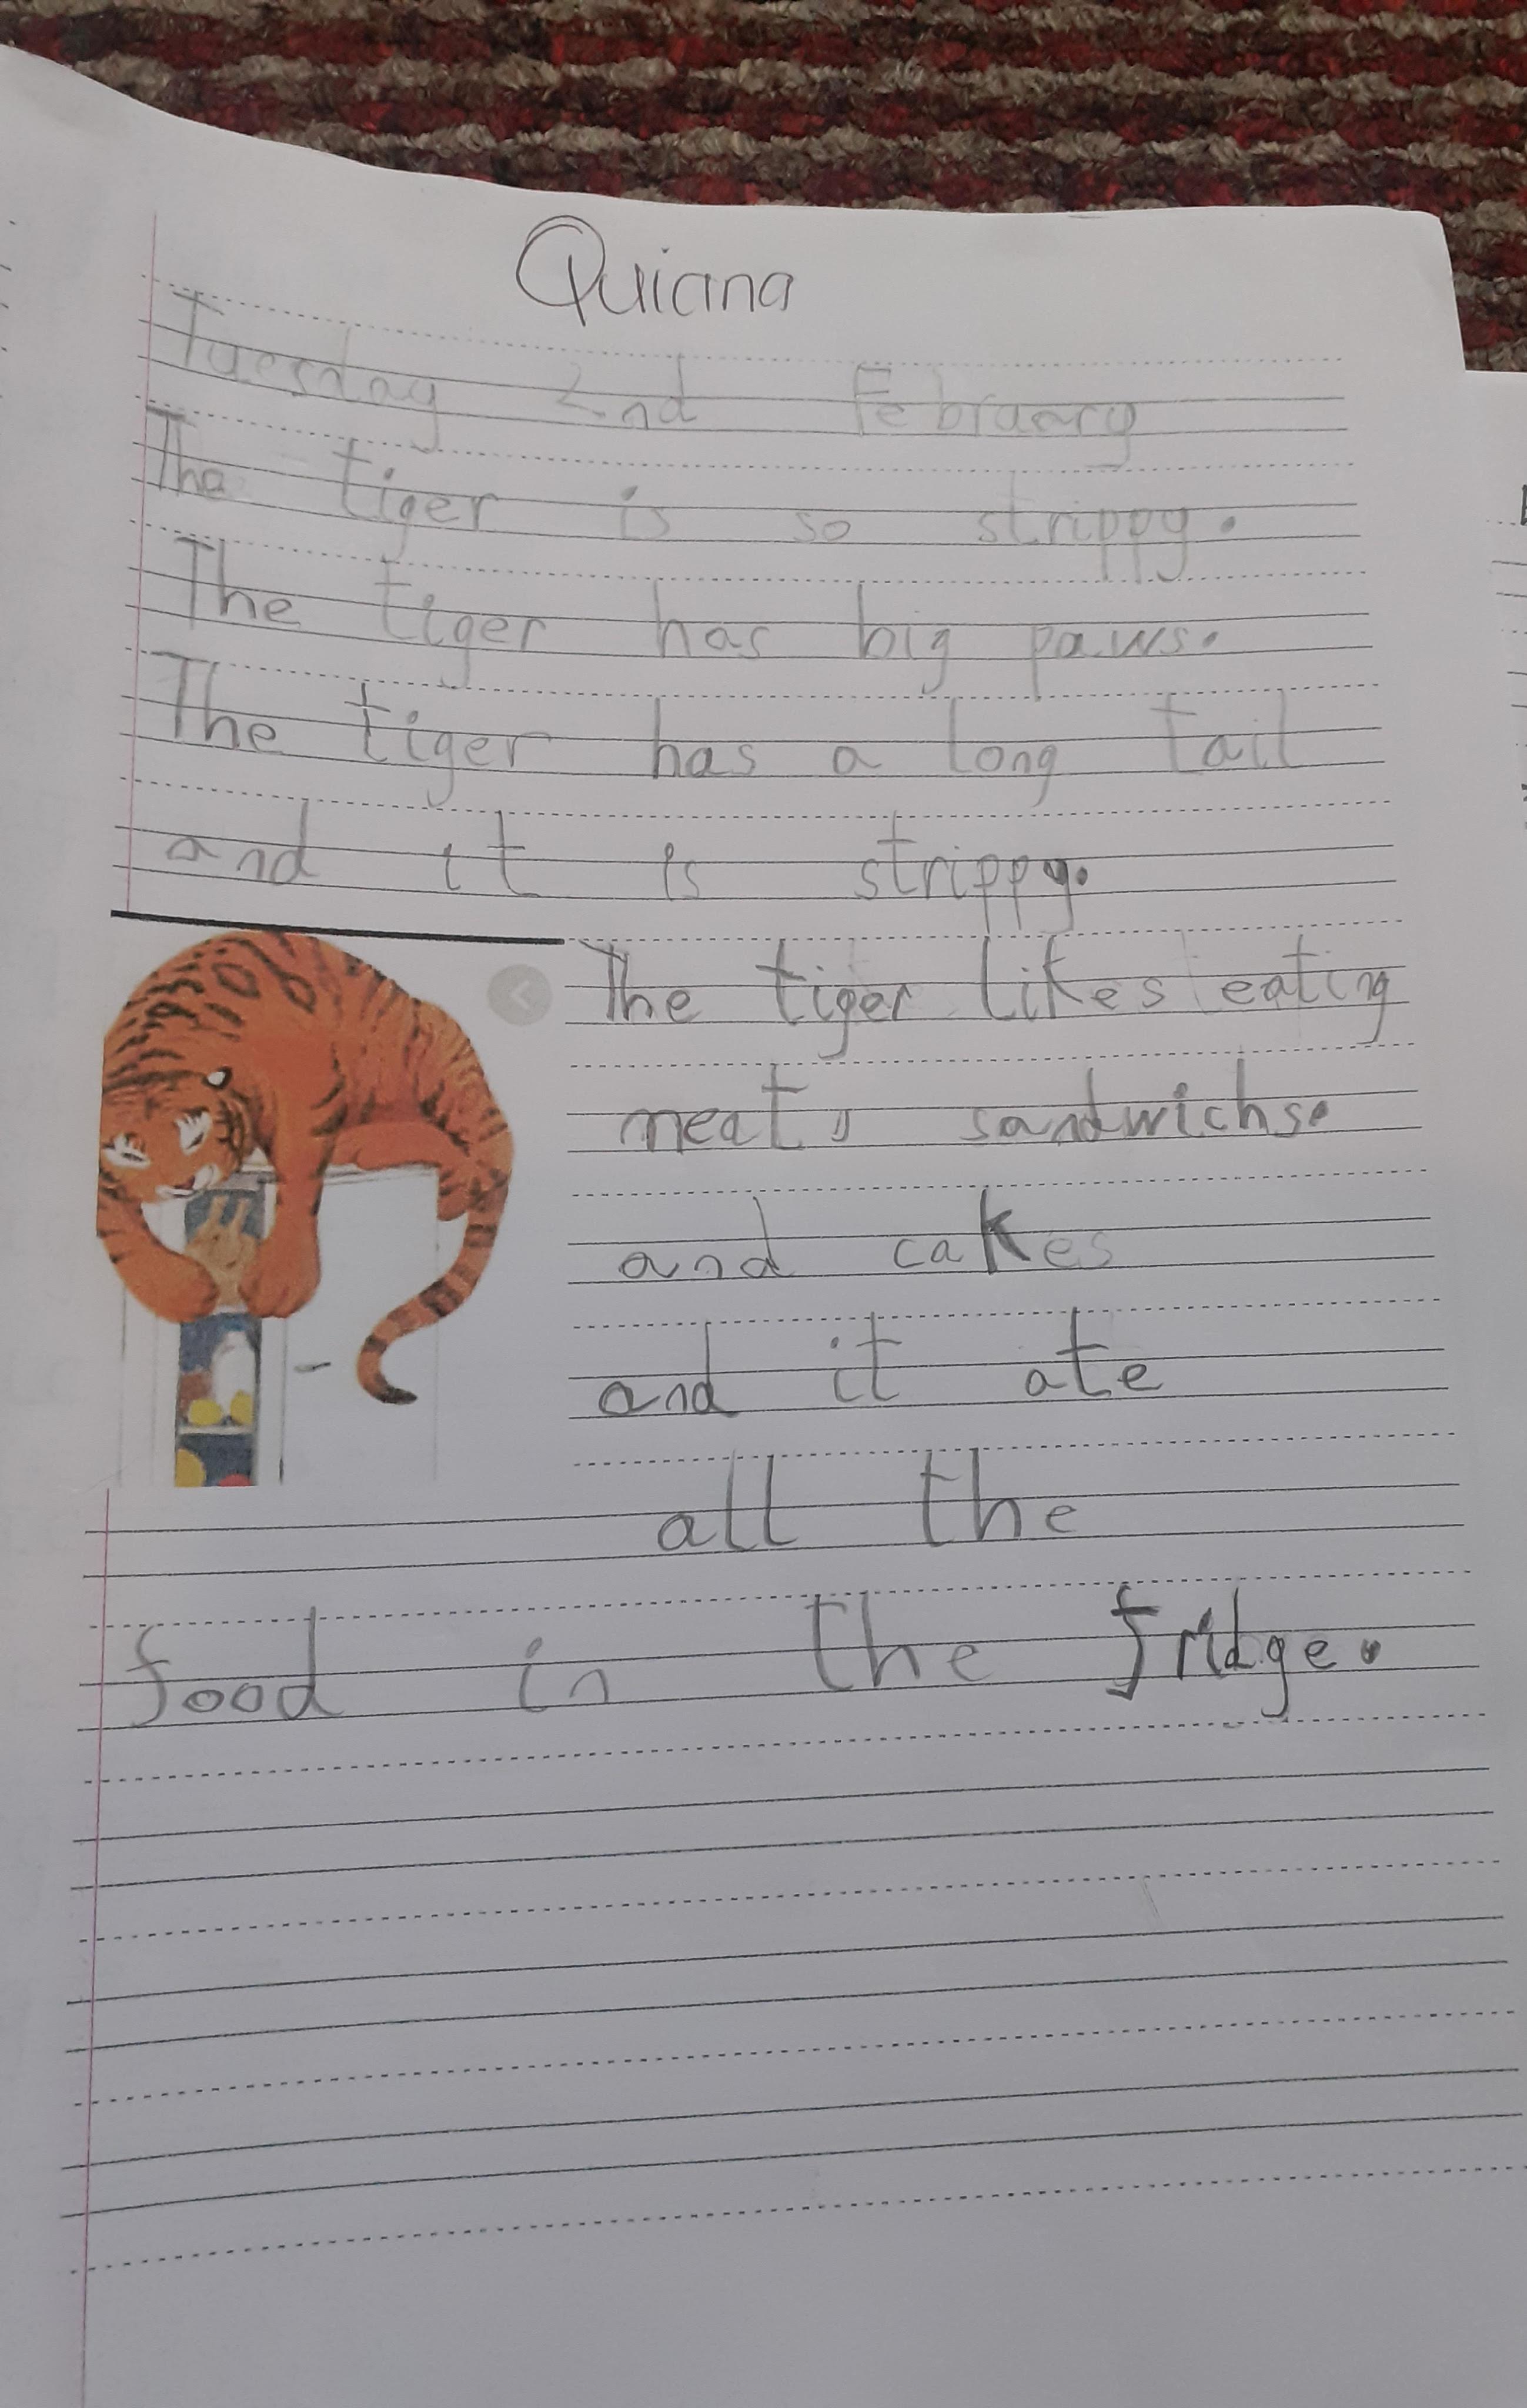 Quiana
Tuesday 2nd February
The tiger is so strippy.
The tiger has big paws.
The tiger has a long tail
and it is strippy.
The tiger likes eating
meat, sandwichs.
and cakes
and it ate
all the
food in the fridge.